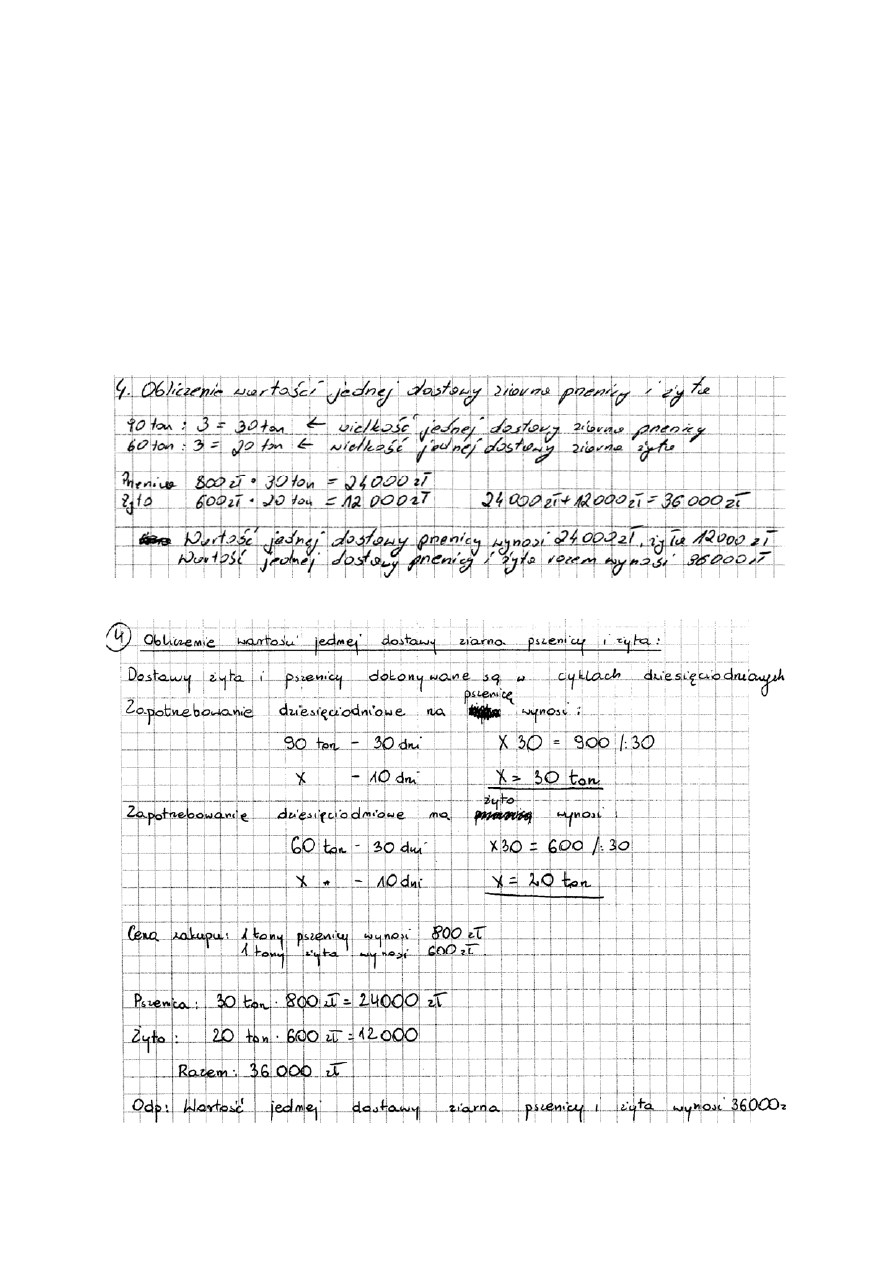 4. Obliczenie wartości jednej dostawy ziarna pszenicy i żyta
90 ton : 3 = 30 ton ← wielkość jednej dostawy ziarna pszenicy
60 ton : 3 = 20 ton ← wielkość jednej dostawy ziarna żyta
Pszenica 800 zł · 30 ton = 24 000 zł
Żyto 600 zł · 20 ton = 12 000 zł 24 000 zł + 12 000 zł = 36 000 zł
Wartość jednej dostawy pszenicy wynosi 24 000 zł, żyta 12000 zł
Wartość jednej dostawy pszenicy i żyta razem wynosi 36 000 zł
4 Obliczenie wartości jednej dostawy ziarna pszenicy i żyta:
Dostawy żyta i pszenicy dokonywane są w cyklach dziesięciodnianych
Zapotrzebowanie dziesięciodniowe na pszenicę wynosi:
90 ton - 30 dni X 30 = 900 /:30
X - 10 dni X = 30 ton
Zapotrzebowanie dziesięciodniowe na żyto wynosi:
60 ton - 30 dni X30 = 600 /:30
X - 10 dni X = 20 ton
Cena zakupu: 1 tony pszenicy wynosi 800 zł
1 tony żyta wynosi 600 zł
Pszenica: 30 ton · 800 zł = 24000 zł
Żyto: 20 ton · 600 zł = 12 000
Razem: 36 000 zł
Odp: Wartość jednej dostawy ziarna pszenicy i żyta wynosi 36000 z